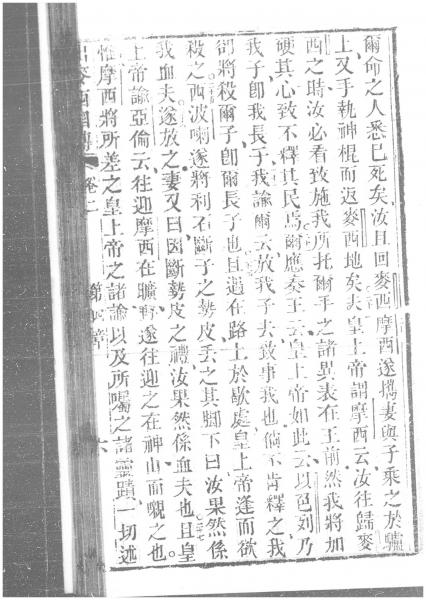 爾命之人悉已死矣汝且回麥西摩西遂攜妻與子乘之於驢
上又手執神棍而返麥西地矣夫皇上帝謂摩西云汝往歸麥
西之時汝必看致施我所托爾手之諸異表在王前然我將加
硬其心致不釋其民焉爾應奏王云皇上帝如此云以色列乃
我子卽我長子我諭爾云放我子去致事我也倘不肯釋之我
卽將殺爾子卽爾長子也且適在路上於歇處皇上帝逢而欲
殺之西波喇遂將利石斷子之勢皮丟之其脚下曰汝果然係
我血夫遂放之妻又曰因斷勢皮之禮汝果然係血夫也且皇
上帝諭亞倫云往迎摩西在曠野遂往迎之在神山而嘴之也
惟摩西將所差之皇上帝之諸諭以及所囑之諸靈蹟一切述
出麥西國傳 卷二 第四章 六